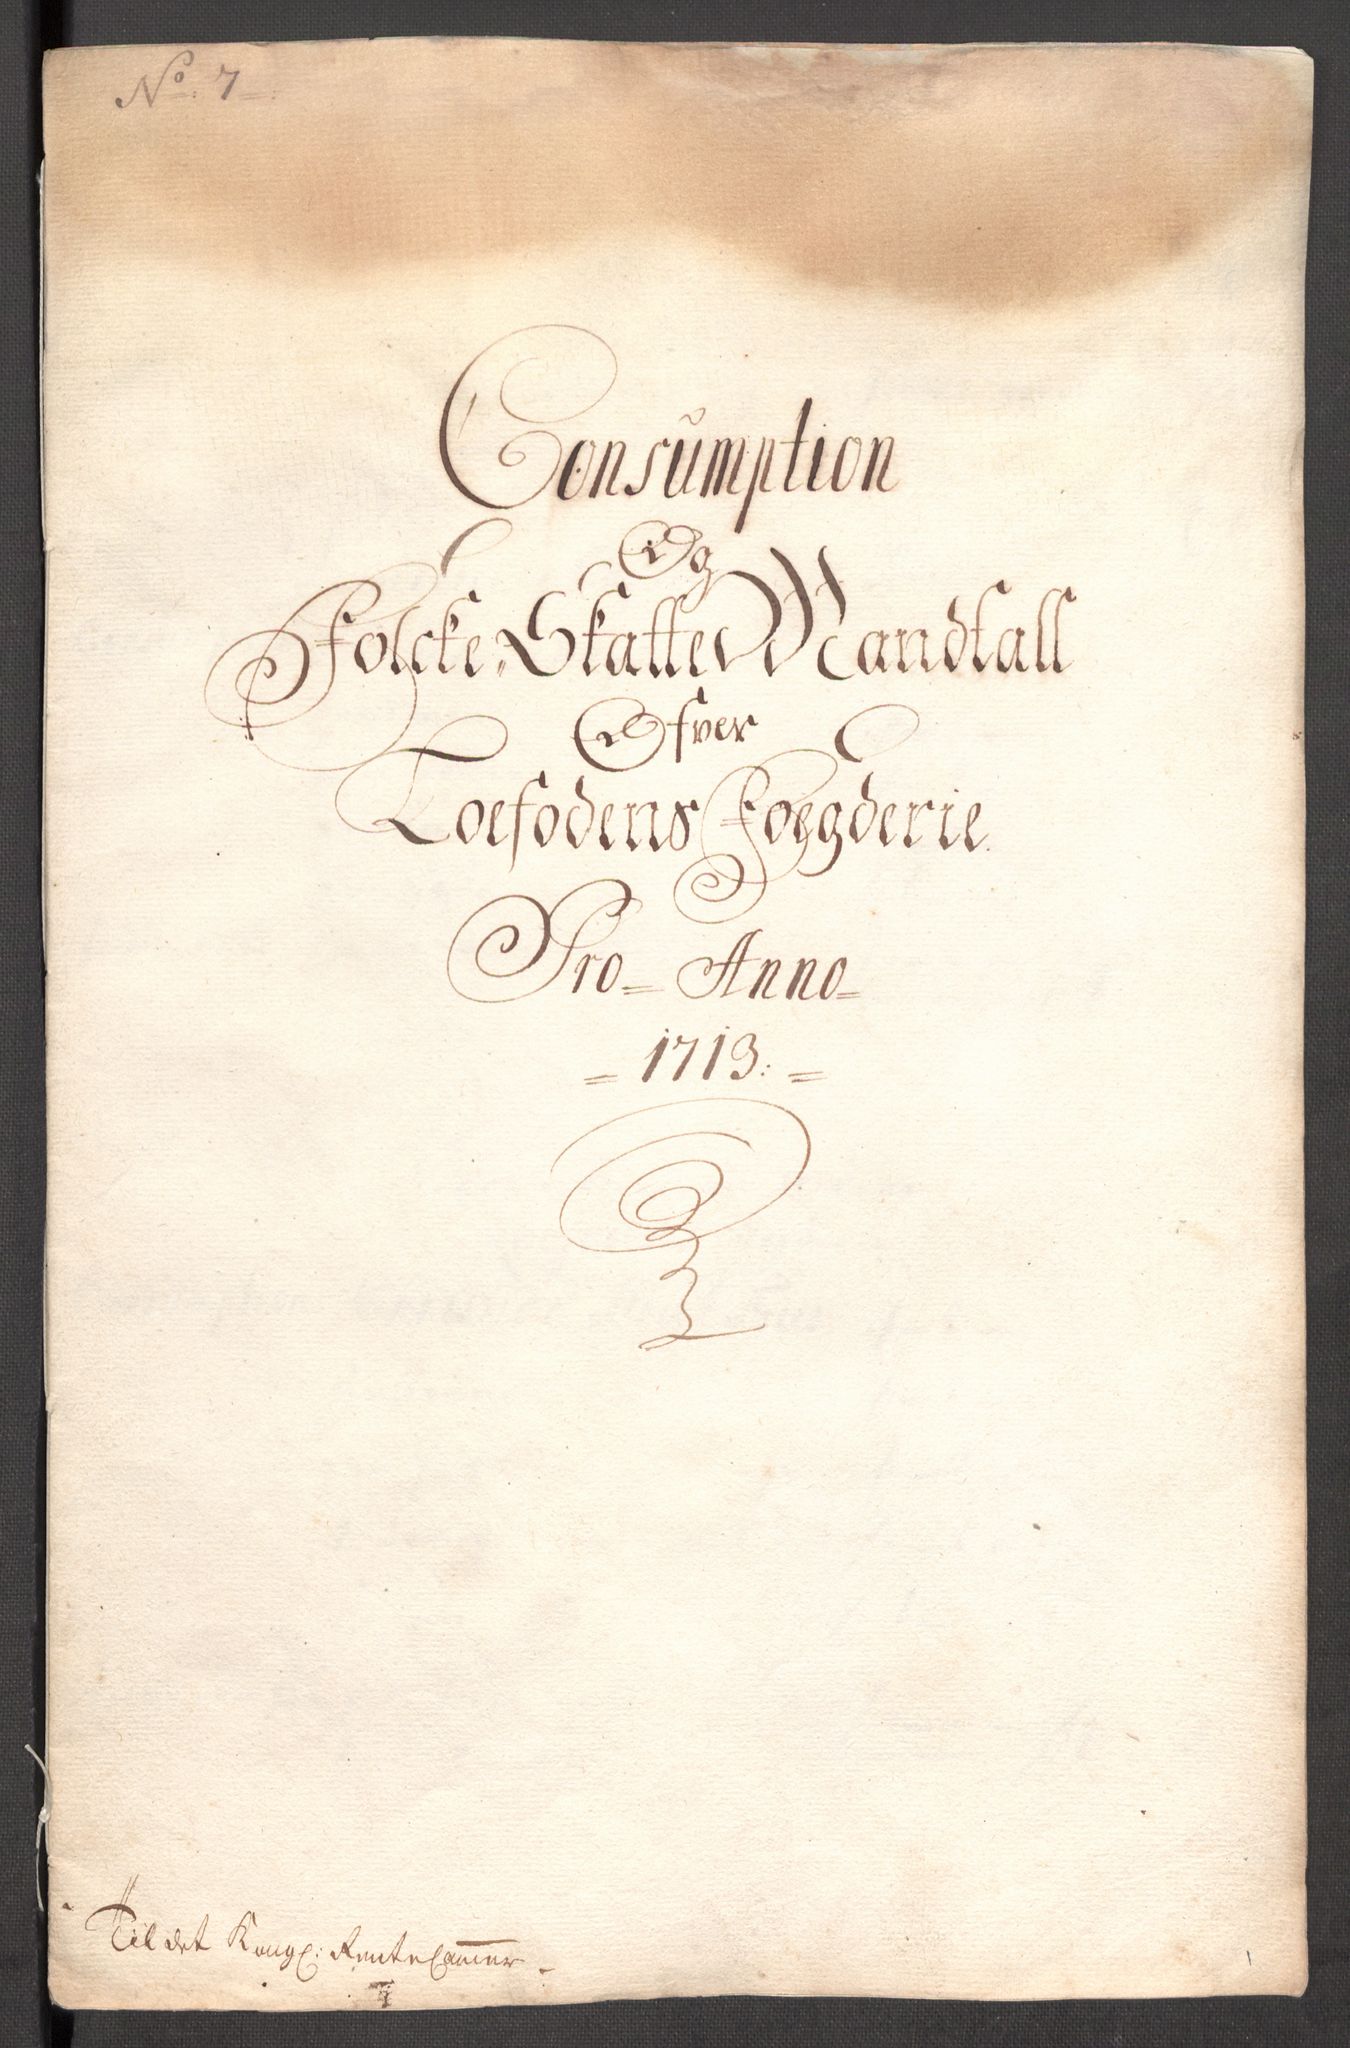 No. 7
Consumption
Og
Folcke-Skattes Mandtall
Ofver
Loefodens Foegderie
Pro Anno
1713.
Til det Kongl: Rente Cammer
1